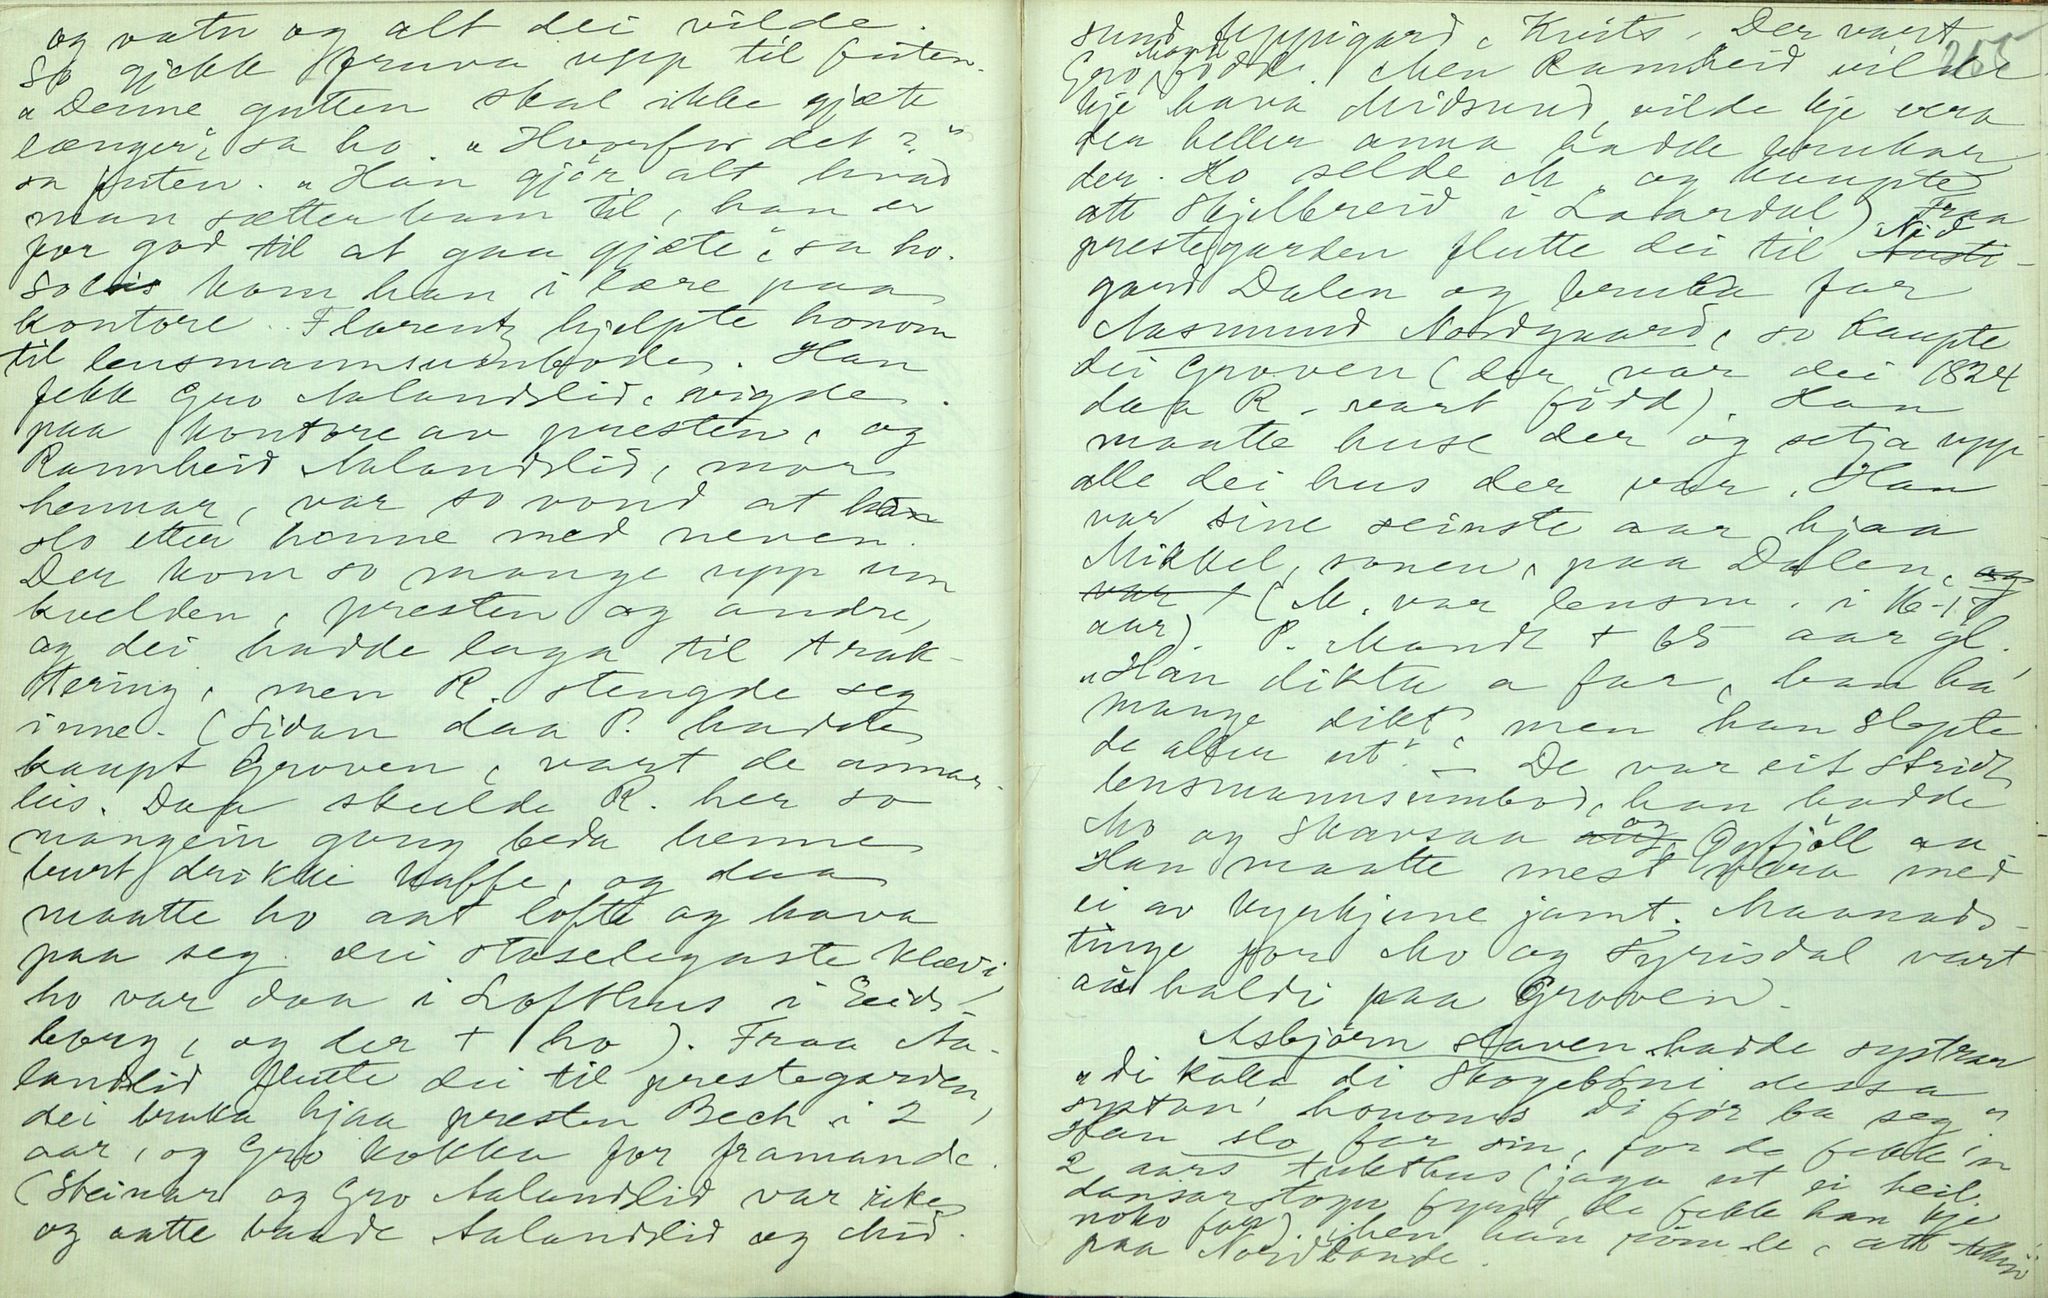 og vatn og alt dei vilde.
So gjekk fruva upp til futen.
"Denne gutten skal ikke gjæte
længer", sa ho. "Hvorfor det?"
sa futen. "Han gjör alt hvad
man sætter ham til, han er
for god til at gaa gjæte", sa ho.
Soleis kom han i lære paa
kontore. Florentz hjelpte honom
til lensmannsumbode. Han
fekk Gro Aalandslid, vigde
paa kontore av presten, og
Ramnheid Aalandslid, mor
hennar, var so vond at han
slo etter henne med neven.
Der kom so mange upp um
kvelden, presten og andre,
og dei hadde laga til trak-
tering, men R. stengde seg
inne. (Sidan daa P. hadde
kaupt Groven, vart de annar-
leis. Daa skulde R. her so
mangein gong beda henne
burt drikke kaffe, og daa
maatte ho aat lofte og hava
paa seg dei staselegaste klæde,
ho var daa i Lofthus i Eids-
borg, og der + ho). Fraa Aa-
landslid flutte dei til prestegarden,
dei bruka hjaa presten Bech i 2
aar, og Gro kokka for framande.
(Steinar og Gro Aalandslid var rike
og aatte baade Aalandslid og Mid-
265
sund Uppigard, Kvits. Der vart
Gro Mandt född. Men Ramnheid vilde
kje hava Midsund, vilde kje vera
der heller anna hadde brukar
der. Ho selde M. og kaupte
att Skjelbreid i Laardal) Fraa
prestegarden flutte dei til Nid Austi-
gard Dalen og bruka for
Aasmund Nordgaard, so kaupte
dei Groven (der var dei 1824
daa R. vart född). Han
maatte huse der og setja upp
alle dei hus der var. Han
var sine seinste aar hjaa
Mikkel, sonen, paa Dalen, og
var + (M. var lensm. i 16-17
aar). P. Mandt + 65 aar gl.
"Han dikta a far, han ha'
mange dikt, men han slepte
de aller ut". — De var eit stridt
lensmannsumbod, han hadde
Mo og Skavsaa og Øyfjöll aa
Han maatte mest vera med
ei av kyrkjune jamt. Maanads-
tinge for Mo og Fyrisdal vart
au haldi paa Groven.
Asbjörn Staven hadde systrar
"di kalla di Skogeböni dessa
systan' honoms di för ba seg"
Han slo far sin, for da fekk 'n
2 aars tukthus (jaga ut ei heil
dansarstogu fyrst, de fekk han kje
noko for). Men han römde, att
paa Nordlande.